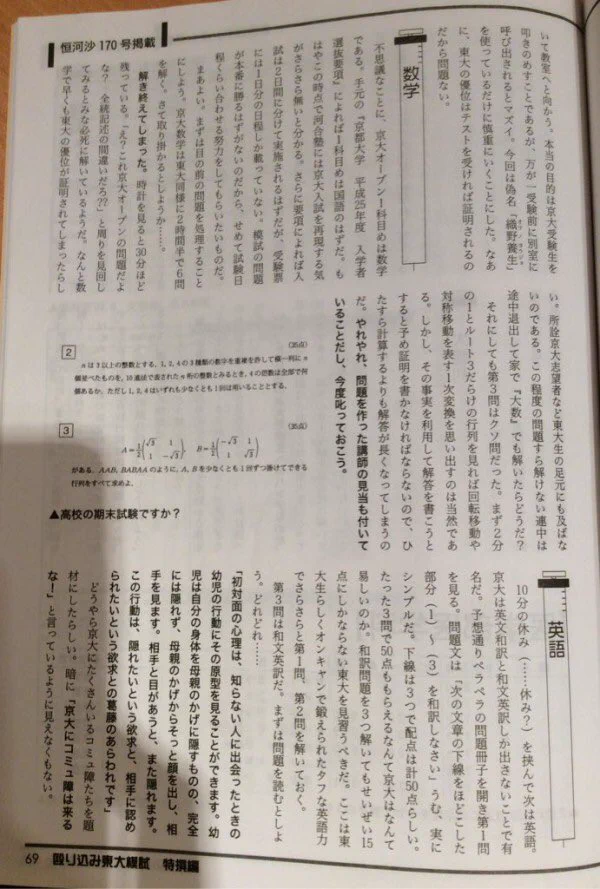 恒河沙 170 号掲載
いて教室へと向かう。本当の目的は京大受験生を
叩きのめすことであるが、万が一受験前に別室に
呼び出されるとマズイ。今回は偽名「織野養生」
オリノ ヨウジョウ
を使っているだけに慎重にいくことにした。なあ
に、東大の優位はテストを受ければ証明されるの
だから問題ない。
数学
不思議なことに、京大オープン1科目めは数学
である。手元の『京都大学 平成25年度 入学者
選抜要項』によれば1科目めは国語のはずだ。も
はやこの時点で河合塾には京大入試を再現する気
がさらさら無いと分かる。さらに要項によれば入
試は2日間に分けて実施されるはずだが、受験票
には1日分の日程しか載っていない。模試の問題
が本番に勝るはずがないのだから、せめて試験日
程くらい合わせる努力をしてもらいたいものだ。
まあよい。まずは目の前の問題を処理すること
にしよう。京大数学は東大同様に2時間半で6問
を解く。さて取り掛かるとしようか……。
解き終えてしまった。時計を見ると30分ほど
残っている。「え？これ京大オープンの問題だよ
な？ 全統記述の間違いだろ??」と周りを見回し
てみるとみな必死に解いているようだ。なんと数
学で早くも東大の優位が証明されてしまったらし
い。所詮京大志望者など東大生の足元にも及ばな
いのである。この程度の問題すら解けない連中は
途中退出して家で『大数』でも解いたらどうだ？
それにしても第3問はクソ問だった。まず2分
の1とルート3だらけの行列を見れば回転移動や
対称移動を表す1次変換を思い出すのは当然であ
る。しかし、その事実を利用して解答を書こうと
すると予め証明を書かなければならないので、ひ
たすら計算するよりも解答が長くなってしまうの
だ。やれやれ、問題を作った講師の見当も付いて
いることだし、今度叱っておこう。
2
(35点)
nは3以上の整数とする．1, 2, 4の3種類の数字を重複を許して横一列にn
個並べたものを，10進法で表されたn桁の整数とみるとき，4の倍数は全部で何
個あるか．ただし1, 2, 4はいずれも少なくとも1回は用いることとする．
3
(35点)
A=1/2(√3 1 1 -√3), B=1/2(-√3 1 -1 -√3)
がある．AAB, BABAAのように，A, Bを少なくとも1回ずつ掛けてできる
行列をすべて求めよ．
▲高校の期末試験ですか？
英語
10分の休み（……休み？）を挟んで次は英語。
京大は英文和訳と和文英訳しか出さないことで有
名だ。予想通りペラペラの問題冊子を開き第1問
を見る。問題文は「次の文章の下線をほどこした
部分（1）～（3）を和訳しなさい」うむ、実に
シンプルだ。下線は3つで配点は計50点らしい。
たった3問で50点ももらえるなんて京大はなんて
易しいのか。和訳問題を3つ解いてもせいぜい15
点にしかならない東大を見習うべきだ。ここは東
大生らしくオンキャンで鍛えられたタフな英語力
でさらさらと第1問、第2問を解いておく。
第3問は和文英訳だ。まずは問題を読むとしよ
う。どれどれ……
「初対面の心理は、知らない人に出会ったときの
幼児の行動にその原型を見ることができます。幼
児は自分の身体を母親のかげに隠すものの、完全
には隠れず、母親のかげからそっと顔を出し、相
手を見ます。相手と目があうと、また隠れます。
この行動は、隠れたいという欲求と、相手に認め
られたいという欲求との葛藤のあらわれです」
どうやら京大にたくさんいるコミュ障たちを題
材にしたらしい。暗に「京大にコミュ障は来る
な！」と言っているように見えなくもない。
69 殴り込み東大模試 特損編